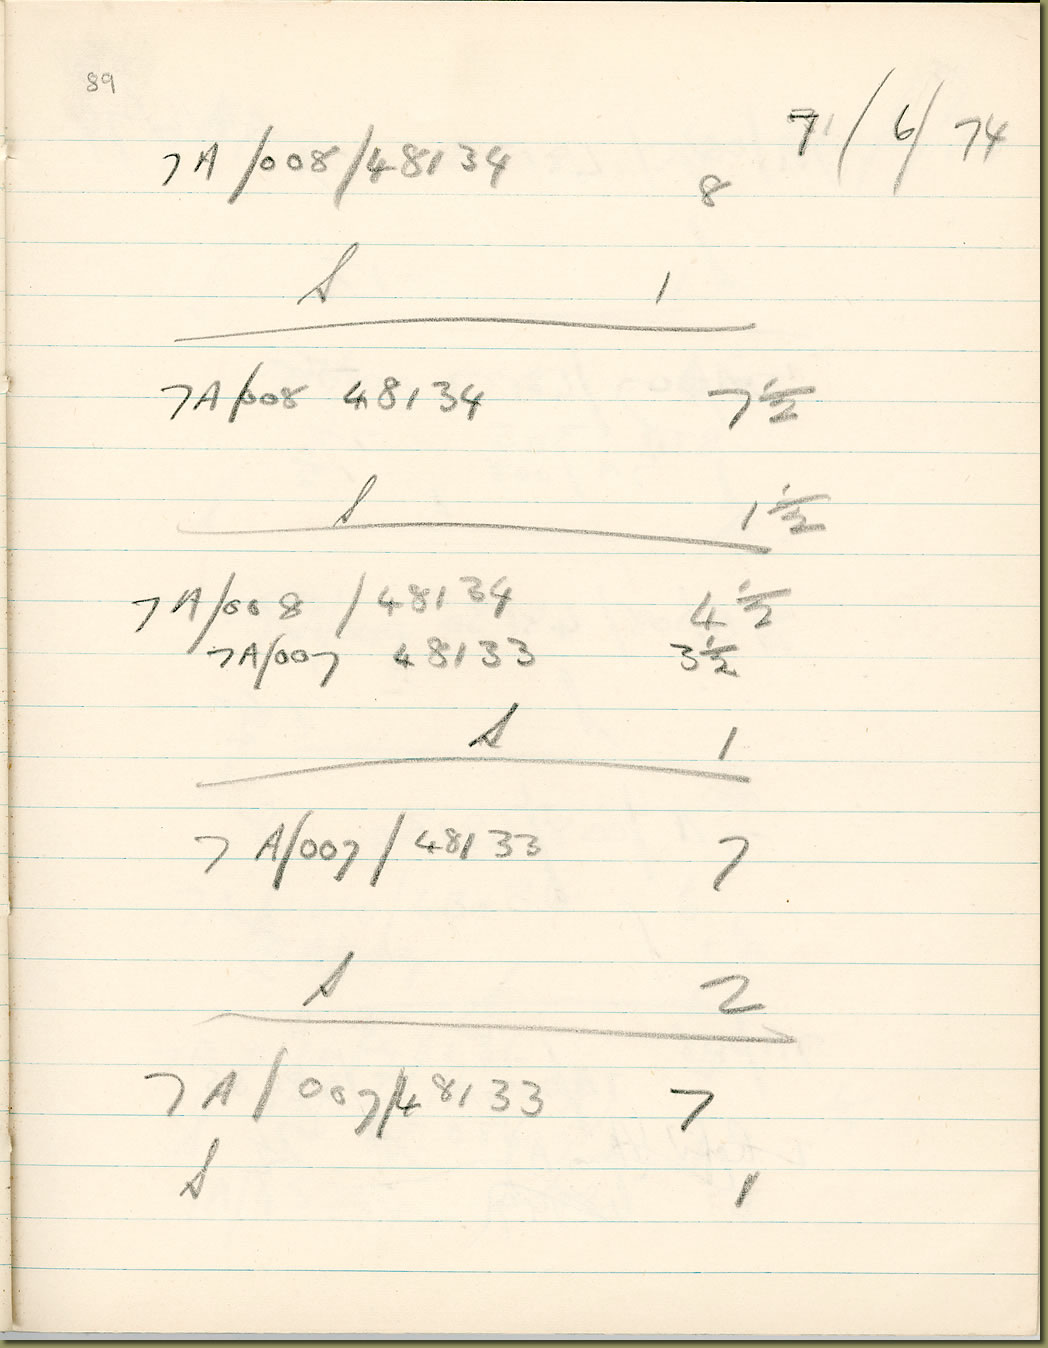 89
7/6/74
7A/008/48134 8
S 1
7A/008 48134 7½
S 1½
7A/008/48134 4½
7A/007 48133 3½
S 1
7A/007/48133 7
S 2
7A/007/48133 7
S 1